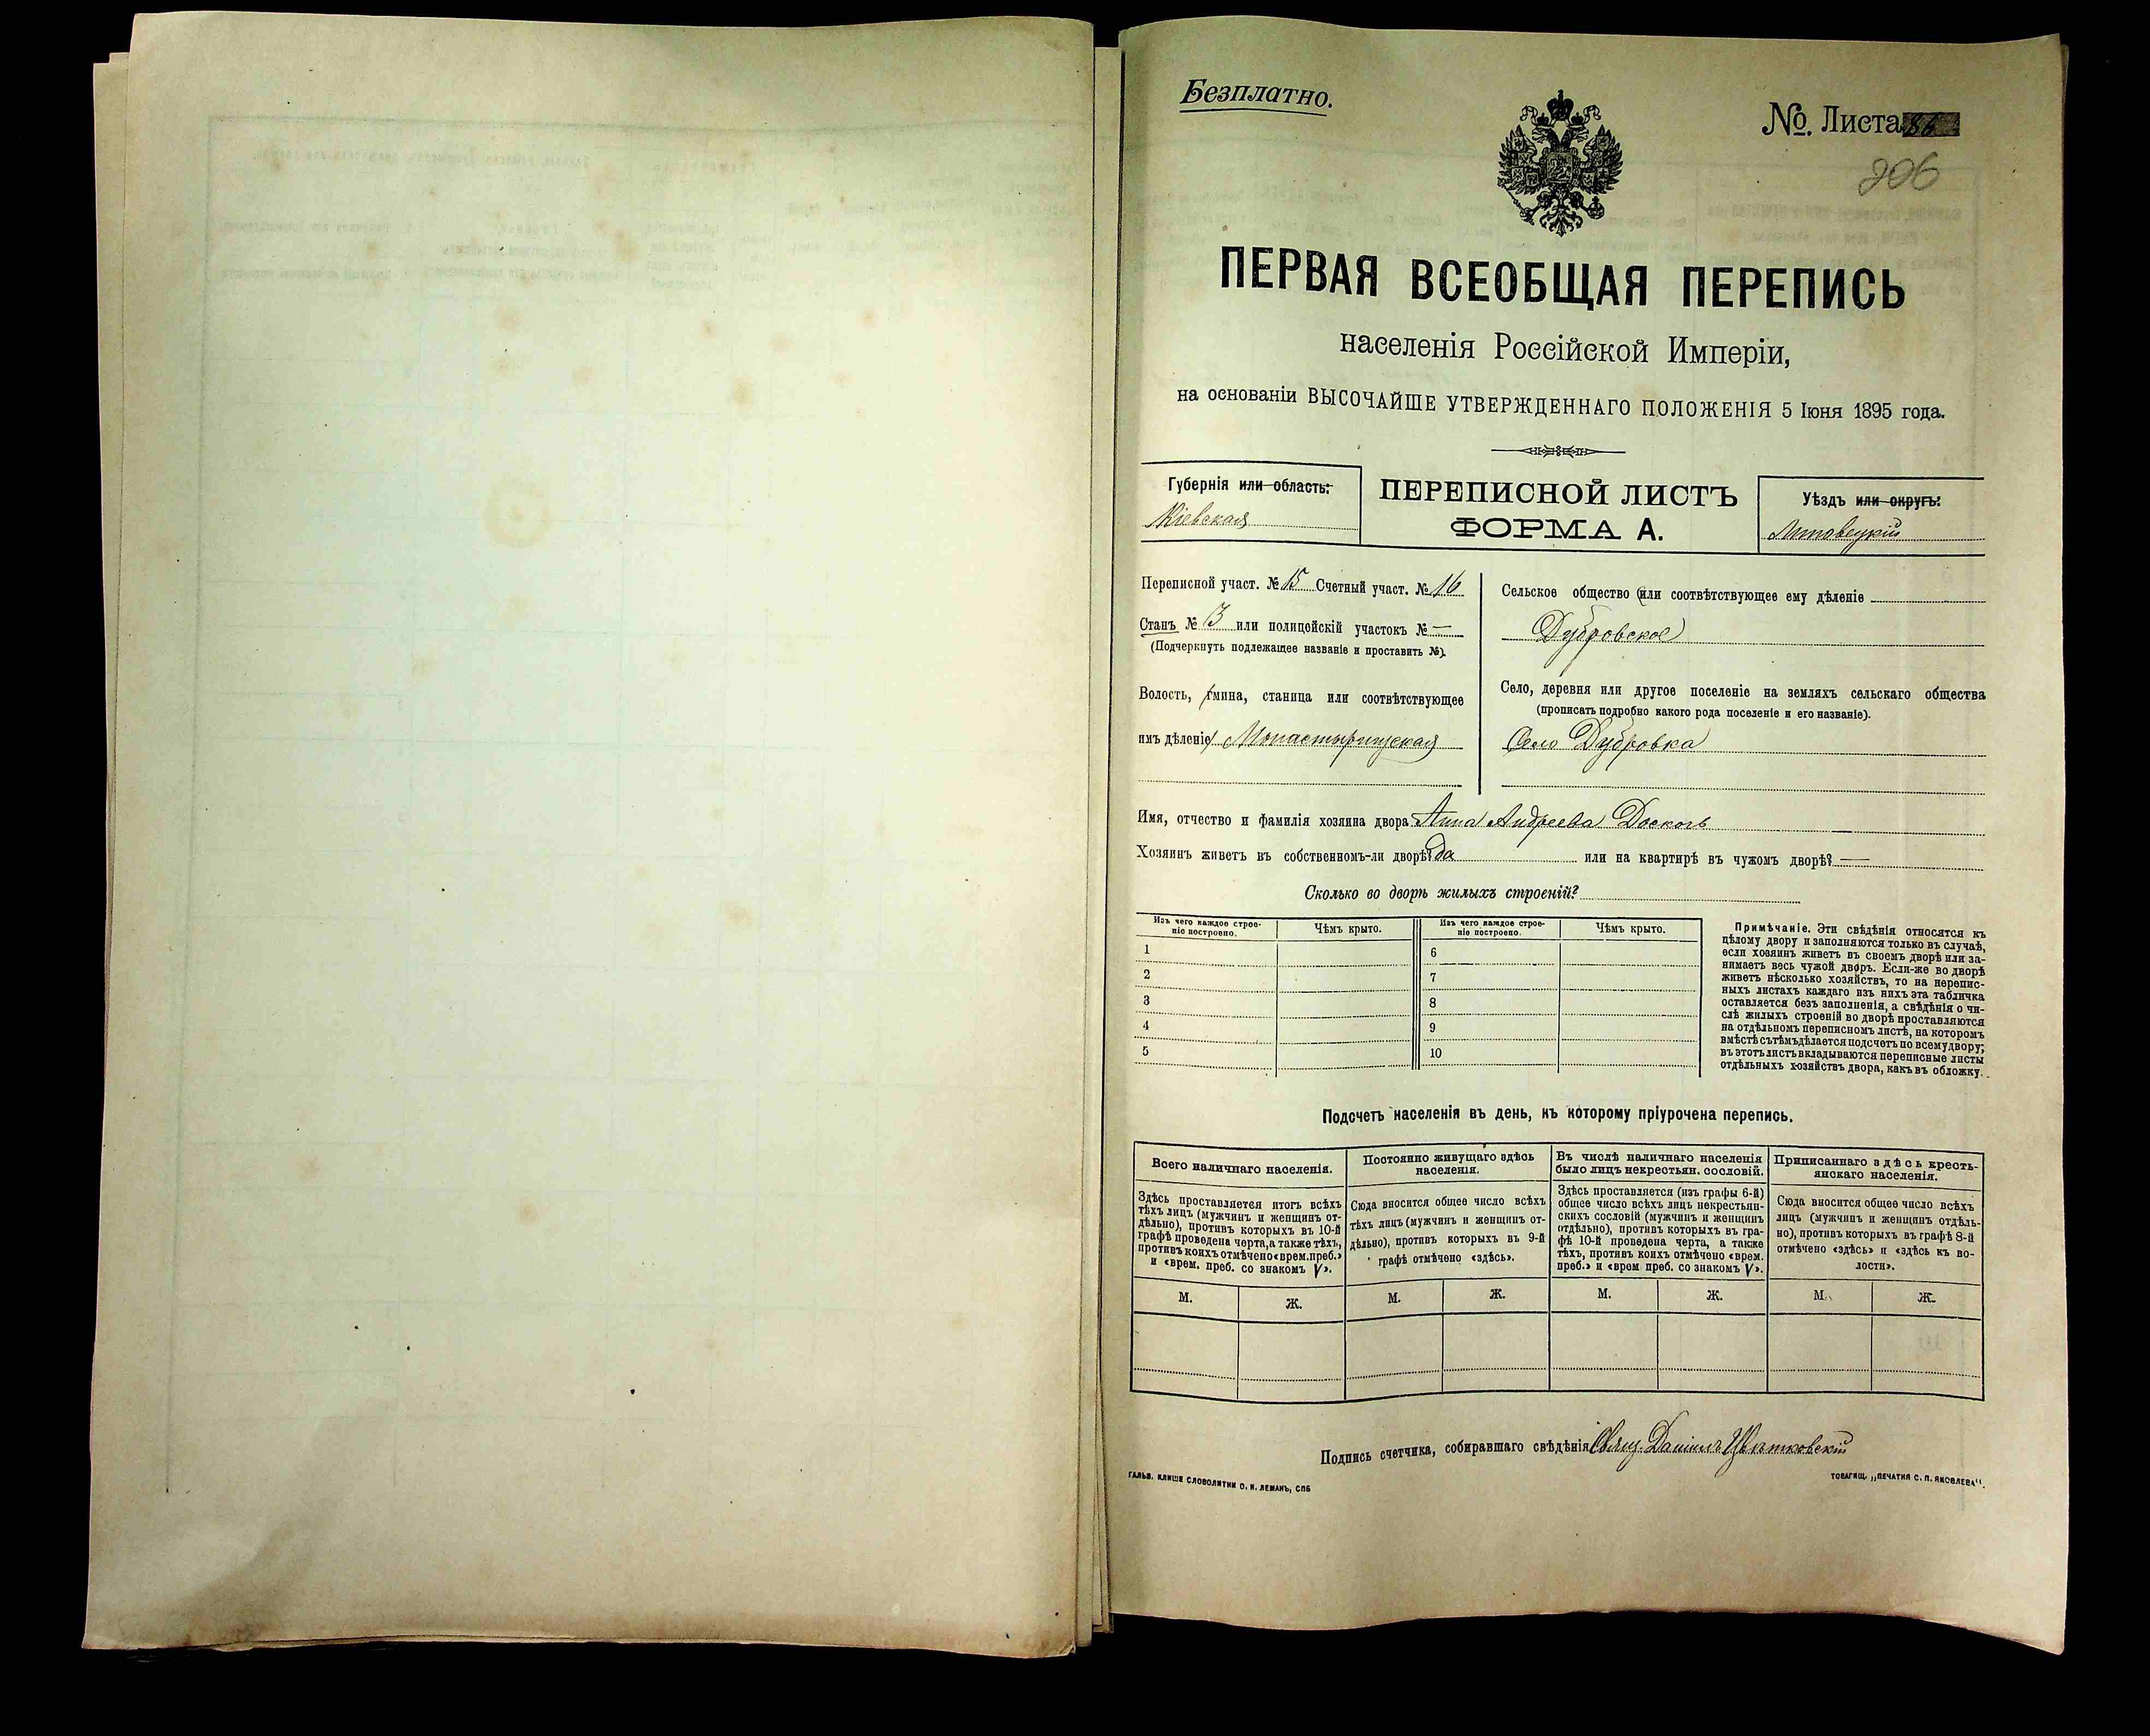 Безплатно.
№. Листа 86
206
ПЕРВАЯ ВСЕОБЩАЯ ПЕРЕПИСЬ
населенія Россійской Имперіи,
на основаніи ВЫСОЧАЙШЕ УТВЕРЖДЕННАГО ПОЛОЖЕНІЯ 5 Іюня 1895 года.
Губернія или область:
Кіевская
ПЕРЕПИСНОЙ ЛИСТЪ
ФОРМА А.
Уѣздъ или округъ:
Липовецкій
Переписной участ. № 15 Счетный участ. № 16
Станъ № 3 или полицейскій участокъ № —
(Подчеркнуть подлежащее названіе и проставить №).
Волость, (гмина, станица или соотвѣтствующее
имъ дѣленіе) Монастырищская
Сельское общество (или соотвѣтствующее ему дѣленіе
Дубровское)
Село, деревня или другое поселеніе на земляхъ сельскаго общества
(прописать подробно какого рода поселеніе и его названіе).
Село Дубровка
Имя, отчество и фамилія хозяина двора Анна Андреева Доскочь
Хозяинъ живетъ въ собственномъ-ли дворѣ? да или на квартирѣ въ чужомъ дворѣ? —
Сколько во дворѣ жилыхъ строеній?
Изъ чего каждое строе-
ніе построено.
Чѣмъ крыто.
Изъ чего каждое строе-
ніе построено.
Чѣмъ крыто.
1
2
3
4
5
6
7
8
9
10
Примѣчаніе. Эти свѣдѣнія относятся къ
цѣлому двору и заполняются только въ случаѣ,
если хозяинъ живетъ въ своемъ дворѣ или за-
нимаетъ весь чужой дворъ. Если-же во дворѣ
живетъ нѣсколько хозяйствъ, то на перепис-
ныхъ листахъ каждаго изъ нихъ эта табличка
оставляется безъ заполненія, а свѣдѣнія о чи-
слѣ жилыхъ строеній во дворѣ проставляются
на отдѣльномъ переписномъ листѣ, на которомъ
вмѣстѣ съ тѣмъ дѣлается подсчетъ по всему двору;
въ этотъ листъ вкладываются переписные листы
отдѣльныхъ хозяйствъ двора, какъ въ обложку.
Подсчетъ населенія въ день, къ которому пріурочена перепись.
Всего наличнаго населенія.
Здѣсь проставляется итогъ всѣхъ
тѣхъ лицъ (мужчинъ и женщинъ от-
дѣльно), противъ которыхъ въ 10-й
графѣ проведена черта, а также тѣхъ,
противъ коихъ отмѣчено «врем. преб.»
и «врем. преб. со знакомъ V».
М.
Ж.
Постоянно живущаго здѣсь
населенія.
Сюда вносится общее число всѣхъ
тѣхъ лицъ (мужчинъ и женщинъ от-
дѣльно), противъ которыхъ въ 9-й
графѣ отмѣчено «здѣсь».
М.
Ж.
Въ числѣ наличнаго населенія
было лицъ некрестьян. сословій.
Здѣсь проставляется (изъ графы 6-й)
общее число всѣхъ лицъ некрестьян-
скихъ сословій (мужчинъ и женщинъ
отдѣльно), противъ которыхъ въ гра-
фѣ 10-й проведена черта, а также
тѣхъ, противъ коихъ отмѣчено «врем.
преб.» и «врем преб. со знакомъ V».
М.
Ж.
Приписаннаго здѣсь кресть-
янскаго населенія.
Сюда вносится общее число всѣхъ
лицъ (мужчинъ и женщинъ отдѣль-
но), противъ которыхъ въ графѣ 8-й
отмѣчено «здѣсь» и «здѣсь къ во-
лости».
М.
Ж.
Подпись счетчика, собиравшаго свѣдѣнія Свящ. Даніилъ Цвѣтковскій
ГАЛЬВ. КЛИШЕ СЛОВОЛИТНИ О. И. ЛЕМАНЪ, СПБ
ТОВАРИЩ. „ПЕЧАТНЯ С. П. ЯКОВЛЕВА“.